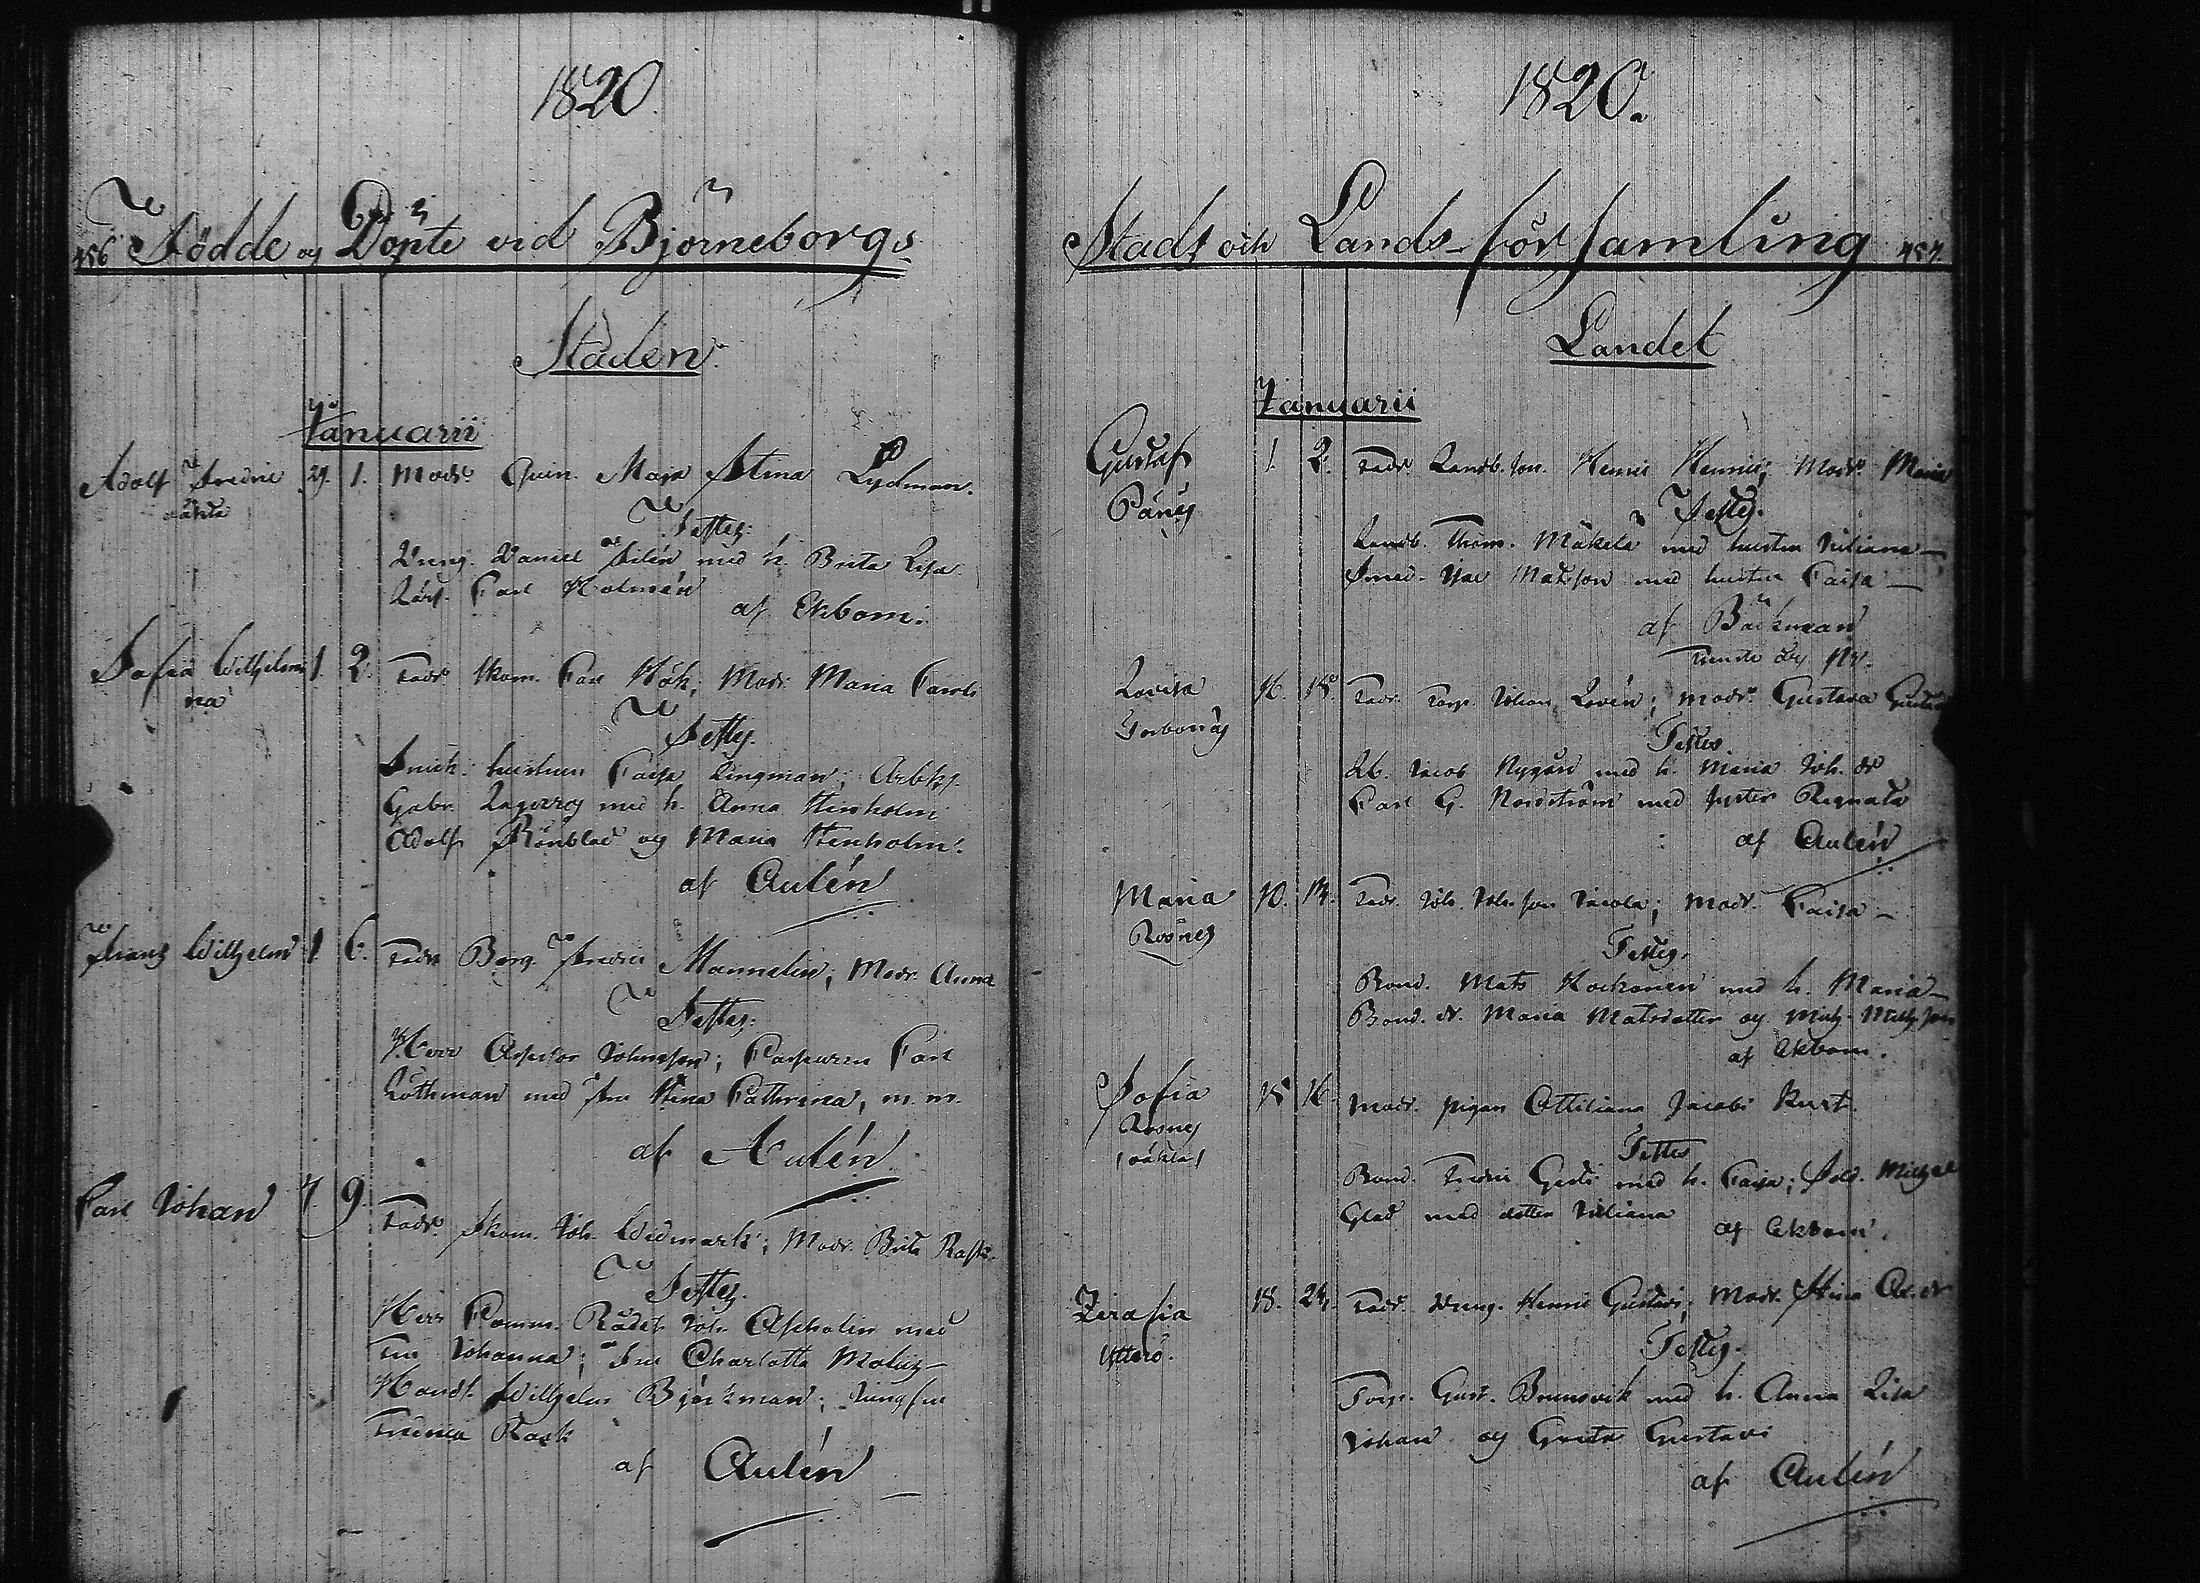 1820.
456 Födde og Döpte vid Björneborgs
Staden.
Januarii
Adolf Fredric 29. 1. Modr Qvin. Maja Stina Lydman.
oäkta
Testes:
Dreng. Daniel Silén med h. Brita Lisa
Lärl. Carl Holmén
af Ekbom.
Sofia Wilhelmi 1. 2. Fadr Skom. Carl Höök, Modr. Maria Caroli
na
Testes.
Snick. hustrun Caisa Lingman; Arbks.
Gabr. Lagerros med h. Anna Stenholm
Adolf Rönblad og Maria Stenholm.
af Aulén
Frans Wilhelm 1 6. Fadr Borg. Fredric Mannelin; Modr. Anna
Testes:
Herr Assessor Johnsson; Carl
Lothman med Fru Stina Cathrina, m. m.
af Aulén
Carl Johan 7. 9. Fadr. Skom. Joh. Widmark; Modr. Brita Rask.
Testes.
Herr Comm. Rådet Joh. Ascholin med
Fru Johanna; Fru Charlotta Molins
Handl. Wilhelm Björkman; Jungfru
Rask
af Aulén
1820.
Stads och Lands-församling 457.
Landet
Januarii
Gustaf 1. 2. Fadr Landb. son. Henric Henrici; Modr. Maria
Påräs
Testes.
Landb. Thom. Mäkelä med hustru Juliana
Smed. Isac Matsson med hustru Caisa
af Bäckman
Lovisa 16. 18. Fadr. Torp. Johan Lovén; Modr. Gustava
Inderes
Testes
Lb. Jacob Nygrén med h. Maria Joh. dr
Carl G. Nordström med syster Regnata
af Aulén
Maria 10. 14. Fadr. Joh. Joh. son Jacola; Modr. Caisa
Rosnes
Testes.
Bond. Mats Kockonen med h. Maria
Bond. dr. Maria Matsdotter og Mich. Mich. son
af Ekbom.
Sofia 15 16. Modr. pigan Ottiliana Jacobi
Rosnes
(oäkta)
Testes
Bond. Fredric med h. Caisa; Sold. Michael
Glad med dotter Juliana
af Ekbom.
Serafia 18. 24. Fadr. Dreng. Henric Gustavi; Modr. Stina Ad. dr
Ytterö.
Testes.
Torp. Gust. Brunsvik med h. Anna Lisa
Johan og Greta Gustavi
af Aulén